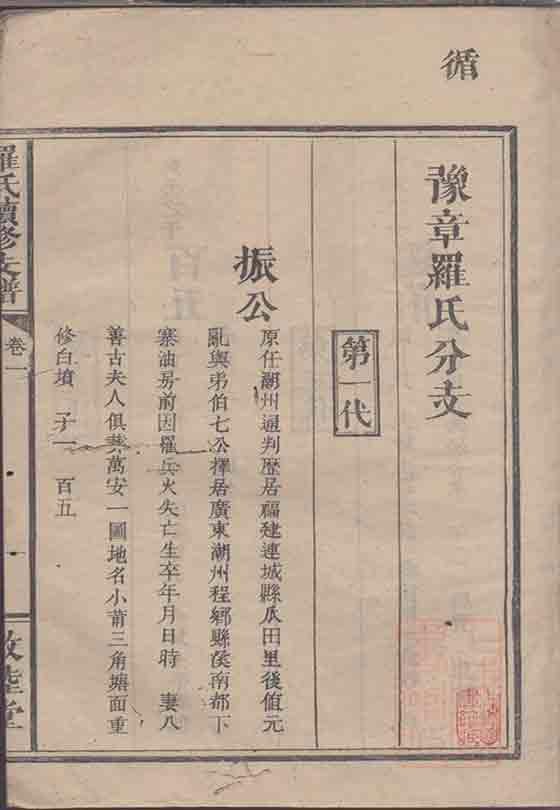 循
豫章羅氏分支
第一代
振公
原任潮州通判歷居福建連城縣瓜田里後值元
亂與弟伯七公擇居廣東潮州程鄉縣侯南都下
寨油房前因罹兵火失亡生卒年月日時 妻八
善古夫人俱葬萬安一圖地名小莆三角塘面重
修白墳 子一 百五
羅氏續修支譜
卷一
敦睦堂